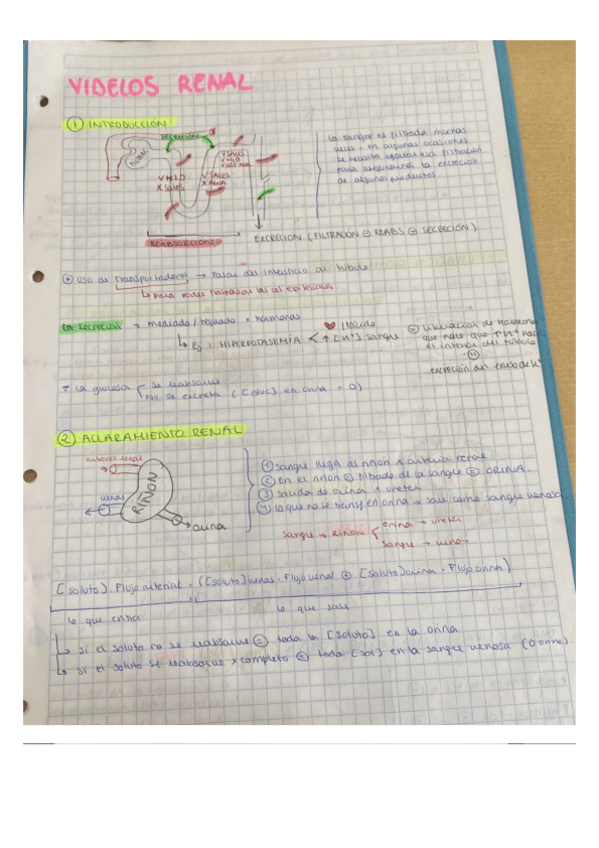 VIDEOS RENAL
① INTRODUCCIÓN
SECRECIÓN
BOWMAN
V H2O
X sales
V SALES
X AGUA
V SALES
V H2O
REABSORCIÓN
EXCRECIÓN (FILTRACIÓN ⊖ REABS ⊕ SECRECIÓN)
la sangre es filtrada muchas
veces, en algunas ocasiones
se necesita repetir esa filtración
para asegurarnos la excreción
de algunos productos
Uso de transportadores → Pasar del intersticio al túbulo
↳ para poder traspasar las cel epiteliales.
La secreción → mediado/regulado x hormonas
↳ Ej: HIPERPOTASEMIA < ↑ [K+] sangre
liberación de hormona
que hace que ↑ K+ hacia
el interior del túbulo
excreción del exceso de K+
La glucosa { se reabsorbe
No se excreta ([Gluc] en orina = 0)
② ACLARAMIENTO RENAL
arteria renal
RIÑON
venas
orina
① sangre llega al riñon x arteria renal
② en el riñon ⊜ filtrado de la sangre ⊜ ORINA.
③ salida de orina x ureter
④ lo que no se transf en orina → sale como sangre venosa.
sangre → RIÑON < orina → ureter
sangre → venas
[soluto] · Flujo arterial = ([soluto] venas · Flujo venal ⊕ [soluto] orina · Flujo orina)
lo que entra
lo que sale
↳ si el soluto no se reabsorbe ⊜ toda la [soluto] en la orina
↳ si el soluto se reabsorbe x completo ⊜ toda [sol] en la sangre venosa (0 orina)